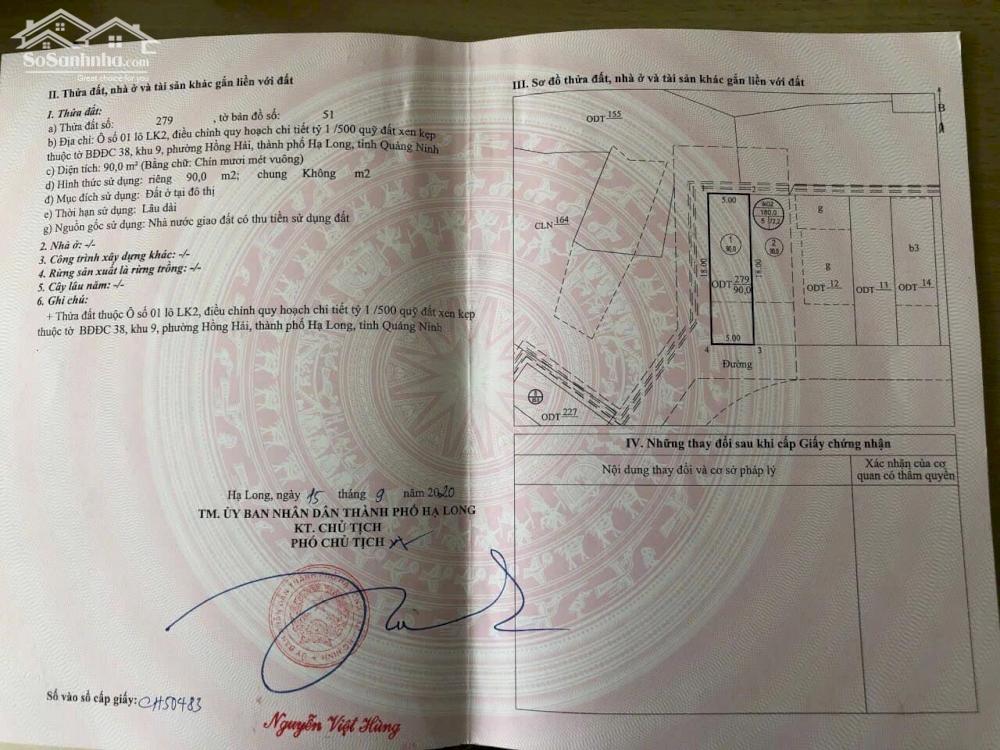 SoSanhnha.com
Great choice for you
II. Thửa đất, nhà ở và tài sản khác gắn liền với đất
1. Thửa đất:
a) Thửa đất số: 279 , tờ bản đồ số: 51
b) Địa chỉ: Ô số 01 lô LK2, điều chỉnh quy hoạch chi tiết tỷ 1 /500 quỹ đất xen kẹp
thuộc tờ BĐĐC 38, khu 9, phường Hồng Hải, thành phố Hạ Long, tỉnh Quảng Ninh
c) Diện tích: 90,0 m² (Bằng chữ: Chín mươi mét vuông)
d) Hình thức sử dụng: riêng 90,0 m2; chung Không m2
đ) Mục đích sử dụng: Đất ở tại đô thị
e) Thời hạn sử dụng: Lâu dài
g) Nguồn gốc sử dụng: Nhà nước giao đất có thu tiền sử dụng đất
2. Nhà ở: -/-
3. Công trình xây dựng khác: -/-
4. Rừng sản xuất là rừng trồng: -/-
5. Cây lâu năm: -/-
6. Ghi chú:
+ Thửa đất thuộc Ô số 01 lô LK2, điều chỉnh quy hoạch chi tiết tỷ 1 /500 quỹ đất xen kẹp
thuộc tờ BĐĐC 38, khu 9, phường Hồng Hải, thành phố Hạ Long, tỉnh Quảng Ninh
Hạ Long, ngày 15 tháng 9 năm 2020
TM. ỦY BAN NHÂN DÂN THÀNH PHỐ HẠ LONG
KT. CHỦ TỊCH
PHÓ CHỦ TỊCH
Số vào sổ cấp giấy: CH50483
Nguyễn Việt Hùng
III. Sơ đồ thửa đất, nhà ở và tài sản khác gắn liền với đất
B
ODT 155
CLN 164
1 2
5.00
180,0
1
90,0
2
90,0
18.00 18.00
ODT 279
90,0
5.00
4 3
Đường
g
g
b3
ODT 12
ODT 13
ODT 14
ODT 227
IV. Những thay đổi sau khi cấp Giấy chứng nhận
Nội dung thay đổi và cơ sở pháp lý
Xác nhận của cơ
quan có thẩm quyền